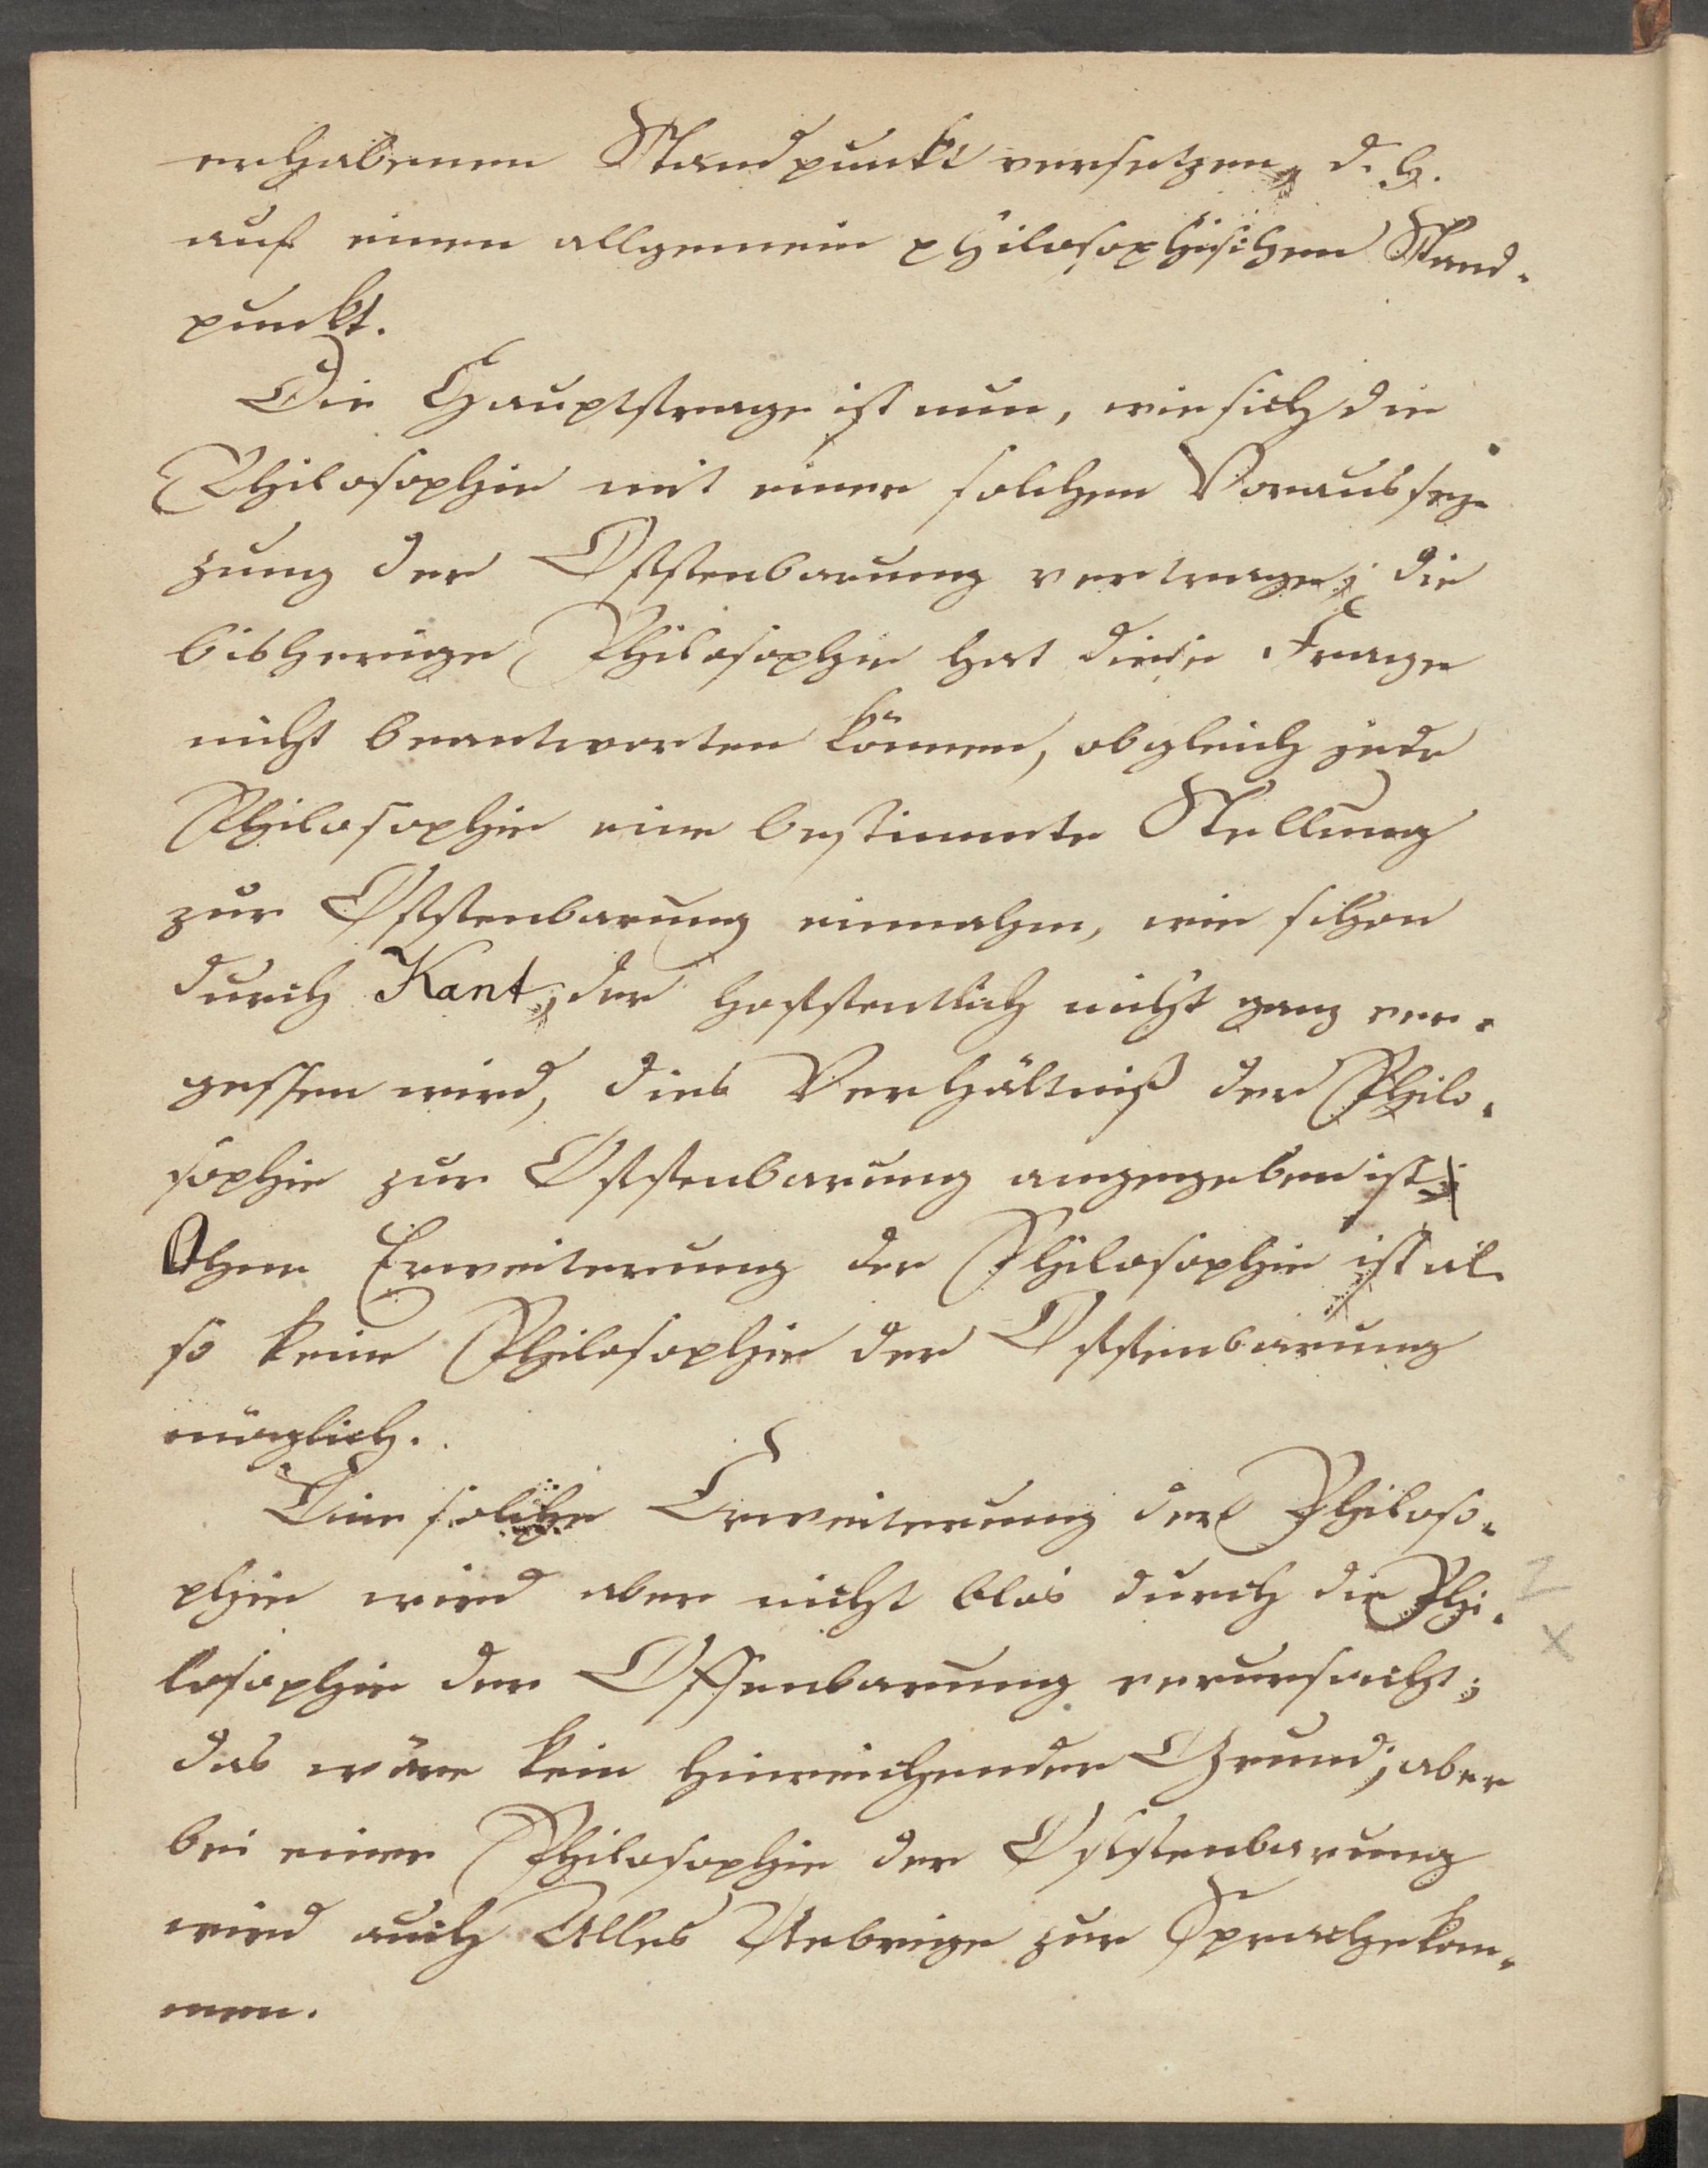 erhabenen Standpunkt versetzen, d. h.
auf einen allgemein philosophischen Stand-
punkt.
Die Hauptfrage ist nun, wie sich die
Philosophie mit einer solchen Voraussez-
zung der Offenbarung vertrage; die
bisherige Philosophie hat diese Frage
nicht beantworten können, obgleich jede
Philosophie eine bestimmte Stellung
zur Offenbarung einnahm, wie schon
durch Kant, der hoffentlich nicht ganz ver-
gessen wird, dies Verhältniß der Philo-
sophie zur Offenbarung angegeben ist;
Ohne Erweiterung der Philosophie ist al-
so keine Philosophie der Offenbarung
möglich.
Eine solche Erweiterung der Philoso-
phie wird aber nicht blos durch die Phi-
losophie der Offenbarung verursacht;
das wäre kein hinreichender Grund; aber
bei einer Philosophie der Offenbarung
wird auch Alles Uebrige zur Sprache kom-
men.